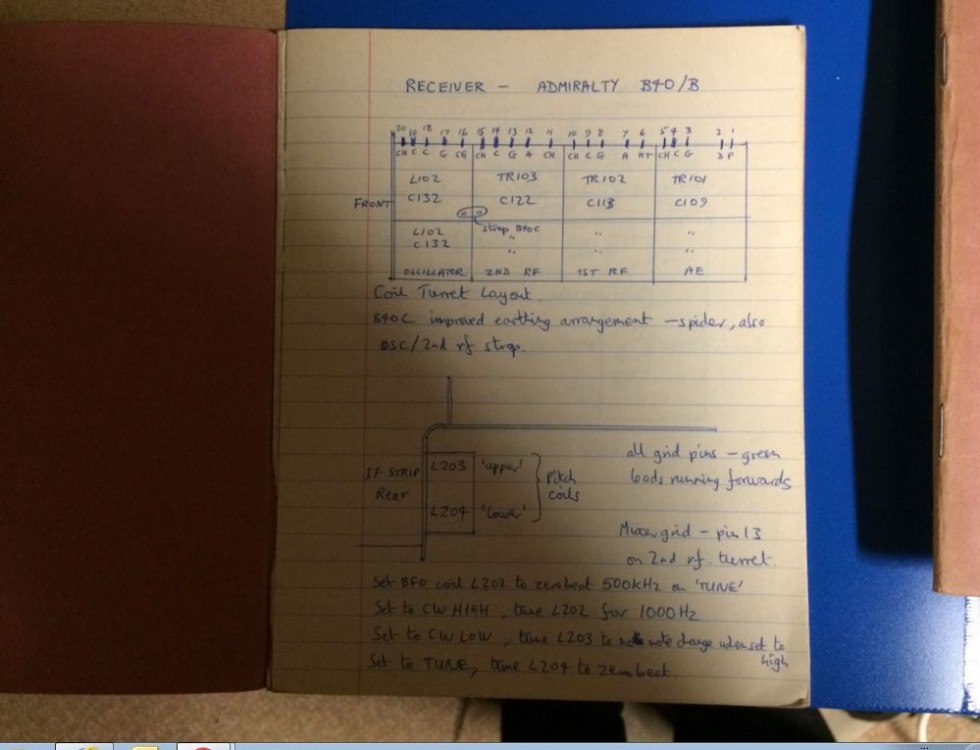 RECEIVER - ADMIRALTY B40/B
20 19 18 17 16 15 14 13 12 11 10 9 8 7 6 5 4 3 2 1
CH C C G SG CH C G A CH CH C G A HT CH C G D P
L102 TR103 TR102 TR101
FRONT C132 C122 C113 C109
L102 strap B40C " "
C132 " " "
OSCILLATOR 2ND RF 1ST RF AE
Coil Turret Layout.
B40C improved earthing arrangement - spider, also
osc/2nd rf strap.
all grid pins - green
leads running forwards
IF STRIP
Rear
L203 'upper'
L204 'lower'
Pitch
coils
Mixer grid - pin 13
on 2nd rf. turret.
Set BFO coil L202 to zerobeat 500KHz on 'TUNE'
Set to CW HIGH, tune L202 for 1000Hz
Set to CW LOW, tune L203 to no note change when set to
high
Set to TUNE, tune L204 to zero beat.